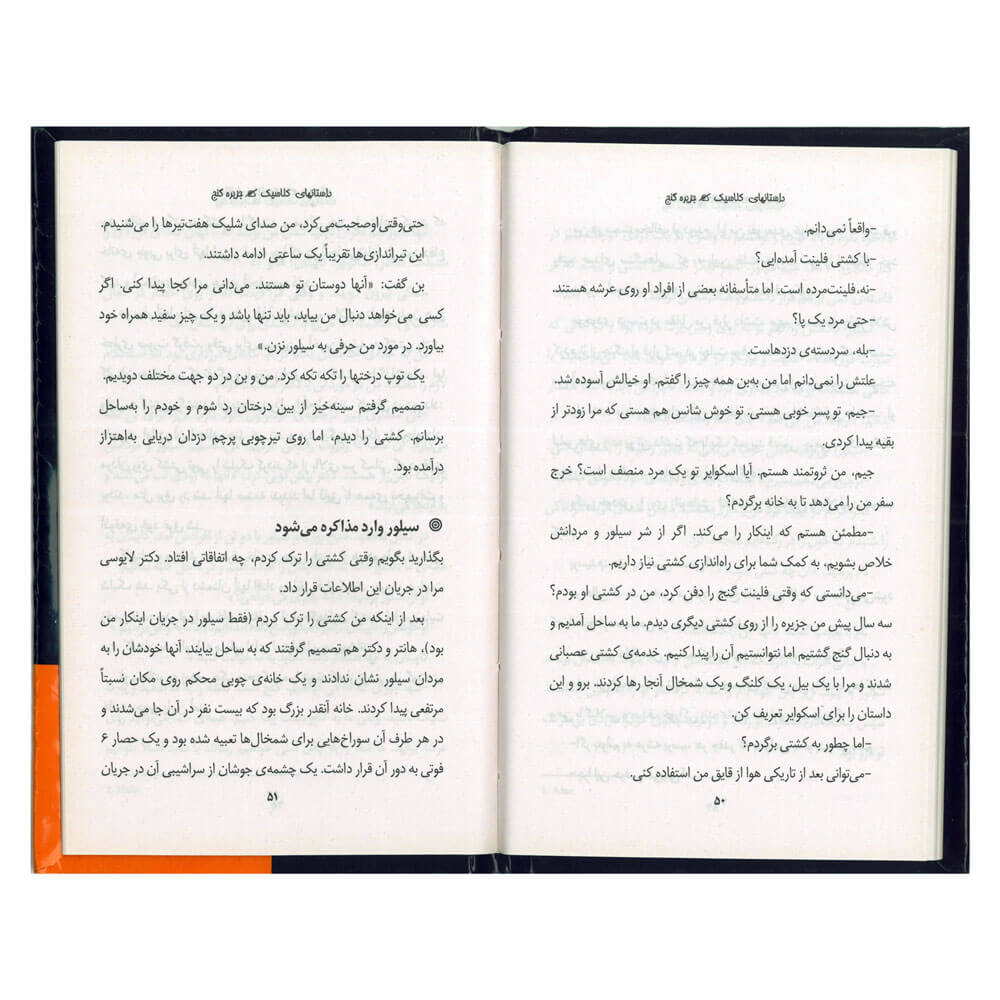 داستانهای کلاسیک جزیره گنج
-واقعاً نمی‌دانم.
-با کشتی فلینت آمده‌ایی؟
-نه،فلینت‌مرده است. اما متأسفانه بعضی از افراد او روی عرشه هستند.
-حتی مرد یک پا؟
-بله، سردسته‌ی دزدهاست.
علتش را نمی‌دانم اما من به‌بن همه چیز را گفتم. او خیالش آسوده شد.
-جیم، تو پسر خوبی هستی. تو خوش شانس هم هستی که مرا زودتر از
بقیه پیدا کردی.
جیم، من ثروتمند هستم. آیا اسکوایر تو یک مرد منصف است؟ خرج
سفر من را می‌دهد تا به خانه برگردم؟
-مطمئن هستم که اینکار را می‌کند. اگر از شر سیلور و مردانش
خلاص بشویم، به کمک شما برای راه‌اندازی کشتی نیاز داریم.
-می‌دانستی که وقتی فلینت گنج را دفن کرد، من در کشتی او بودم؟
سه سال پیش من جزیره را از روی کشتی دیگری دیدم. ما به ساحل آمدیم و
به دنبال گنج گشتیم اما نتوانستیم آن را پیدا کنیم. خدمه‌ی کشتی عصبانی
شدند و مرا با یک بیل، یک کلنگ و یک شمخال آنجا رها کردند. برو و این
داستان را برای اسکوایر تعریف کن.
-اما چطور به کشتی برگردم؟
-می‌توانی بعد از تاریکی هوا از قایق من استفاده کنی.
۵۰
داستانهای کلاسیک جزیره گنج
حتی‌وقتی‌اوصحبت‌می‌کرد، من صدای شلیک هفت‌تیرها را می‌شنیدم.
این تیراندازی‌ها تقریباً یک ساعتی ادامه داشتند.
بن گفت: «آنها دوستان تو هستند. می‌دانی مرا کجا پیدا کنی. اگر
کسی می‌خواهد دنبال من بیاید، باید تنها باشد و یک چیز سفید همراه خود
بیاورد. در مورد من حرفی به سیلور نزن.»
یک توپ درختها را تکه تکه کرد. من و بن در دو جهت مختلف دویدیم.
تصمیم گرفتم سینه‌خیز از بین درختان رد شوم و خودم را به‌ساحل
برسانم. کشتی را دیدم، اما روی تیرچوبی پرچم دزدان دریایی به‌اهتزاز
درآمده بود.
◎ سیلور وارد مذاکره می‌شود
بگذارید بگویم وقتی کشتی را ترک کردم، چه اتفاقاتی افتاد. دکتر لایوسی
مرا در جریان این اطلاعات قرار داد.
بعد از اینکه من کشتی را ترک کردم (فقط سیلور در جریان اینکار من
بود)، هانتر و دکتر هم تصمیم گرفتند که به ساحل بیایند. آنها خودشان را به
مردان سیلور نشان ندادند و یک خانه‌ی چوبی محکم روی مکان نسبتاً
مرتفعی پیدا کردند. خانه آنقدر بزرگ بود که بیست نفر در آن جا می‌شدند و
در هر طرف آن سوراخ‌هایی برای شمخال‌ها تعبیه شده بود و یک حصار ۶
فوتی به دور آن قرار داشت. یک چشمه‌ی جوشان از سراشیبی آن در جریان
۵۱